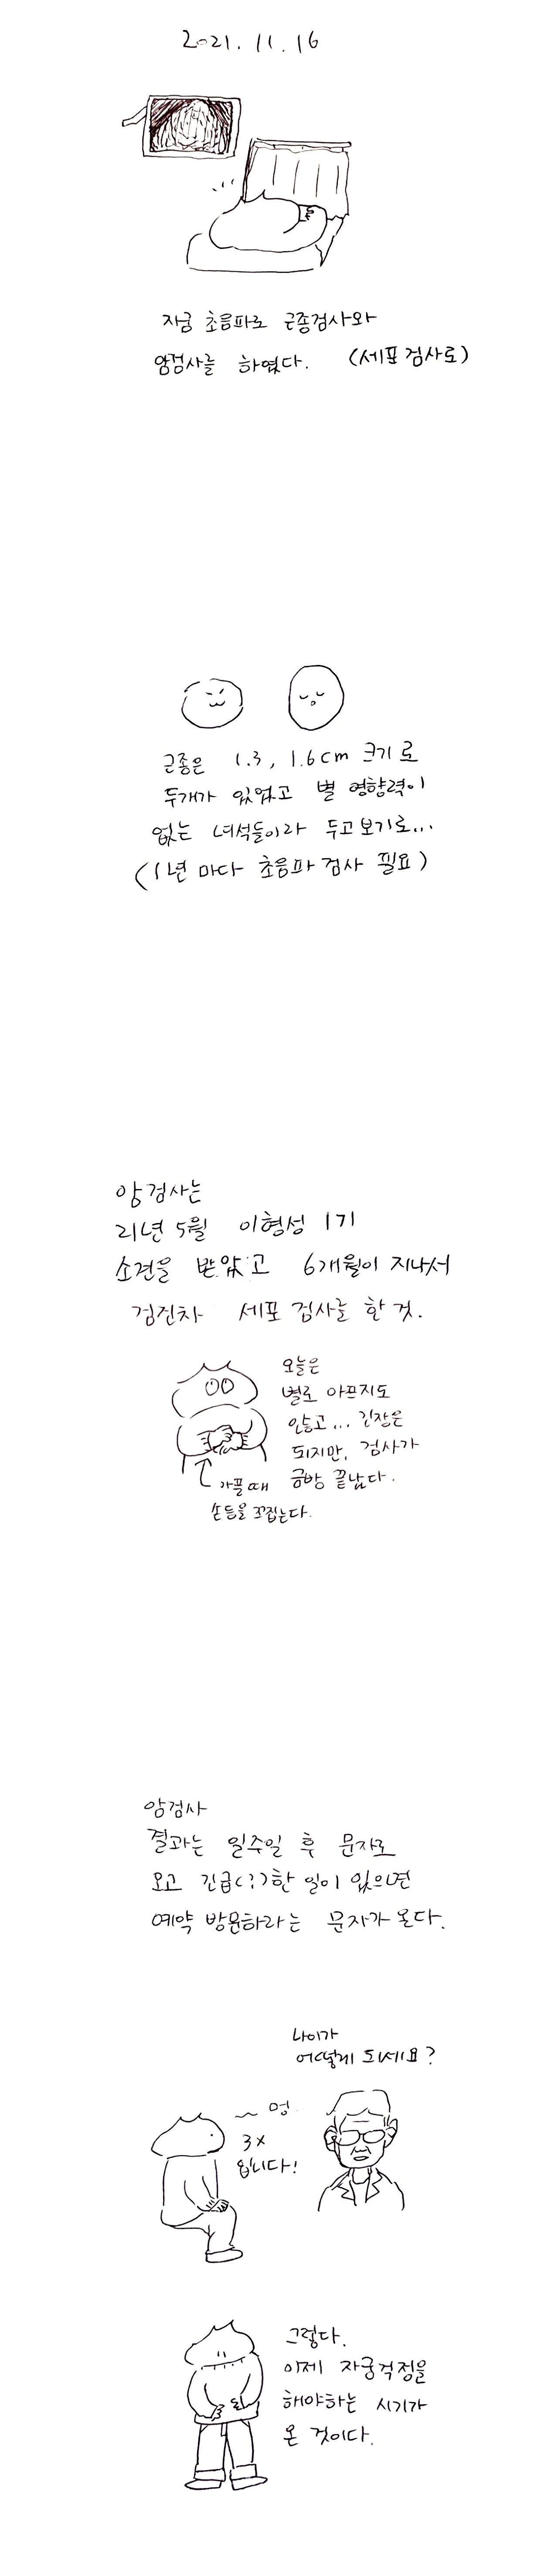 2021. 11. 16
자궁 초음파로 근종검사와
암검사를 하였다. (세포 검사로)
근종은 1.3, 1.6cm 크기로
두개가 있었고 별 영향력이
없는 녀석들이라 두고 보기로...
(1년 마다 초음파 검사 필요)
암검사는
21년 5월 이형성 1기
소견을 받았고 6개월이 지나서
검진차 세포 검사를 한 것.
오늘은
별로 아프지도
않고... 긴장은
되지만, 검사가
금방 끝났다.
아플 때
손등을 꼬집는다.
암검사
결과는 일주일 후 문자로
오고 긴급(?)한 일이 있으면
예약 방문하라는 문자가 온다.
나이가
어떻게 되세요?
멍
3x
입니다!
그렇다.
이제 자궁걱정을
해야하는 시기가
온 것이다.